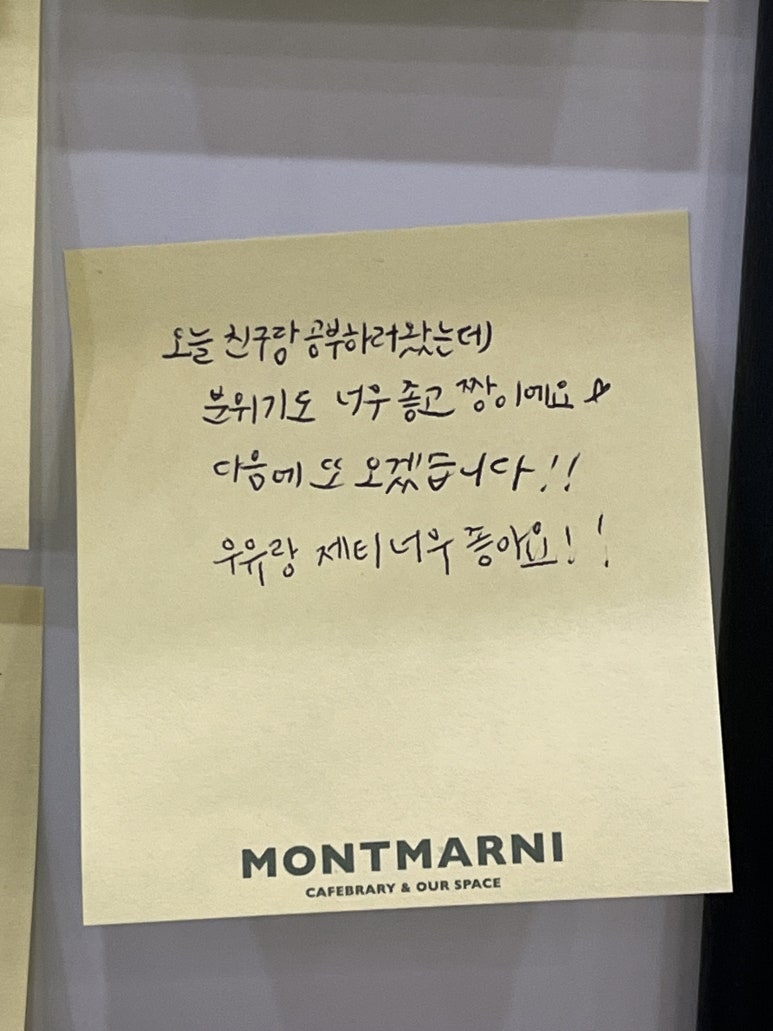 오늘 친구랑 공부하러왔는데
분위기도 너무 좋고 짱이에요♡
다음에 또 오겠습니다!!
우유랑 제티 너무 좋아요!!
MONTMARNI
CAFEBRARY & OUR SPACE